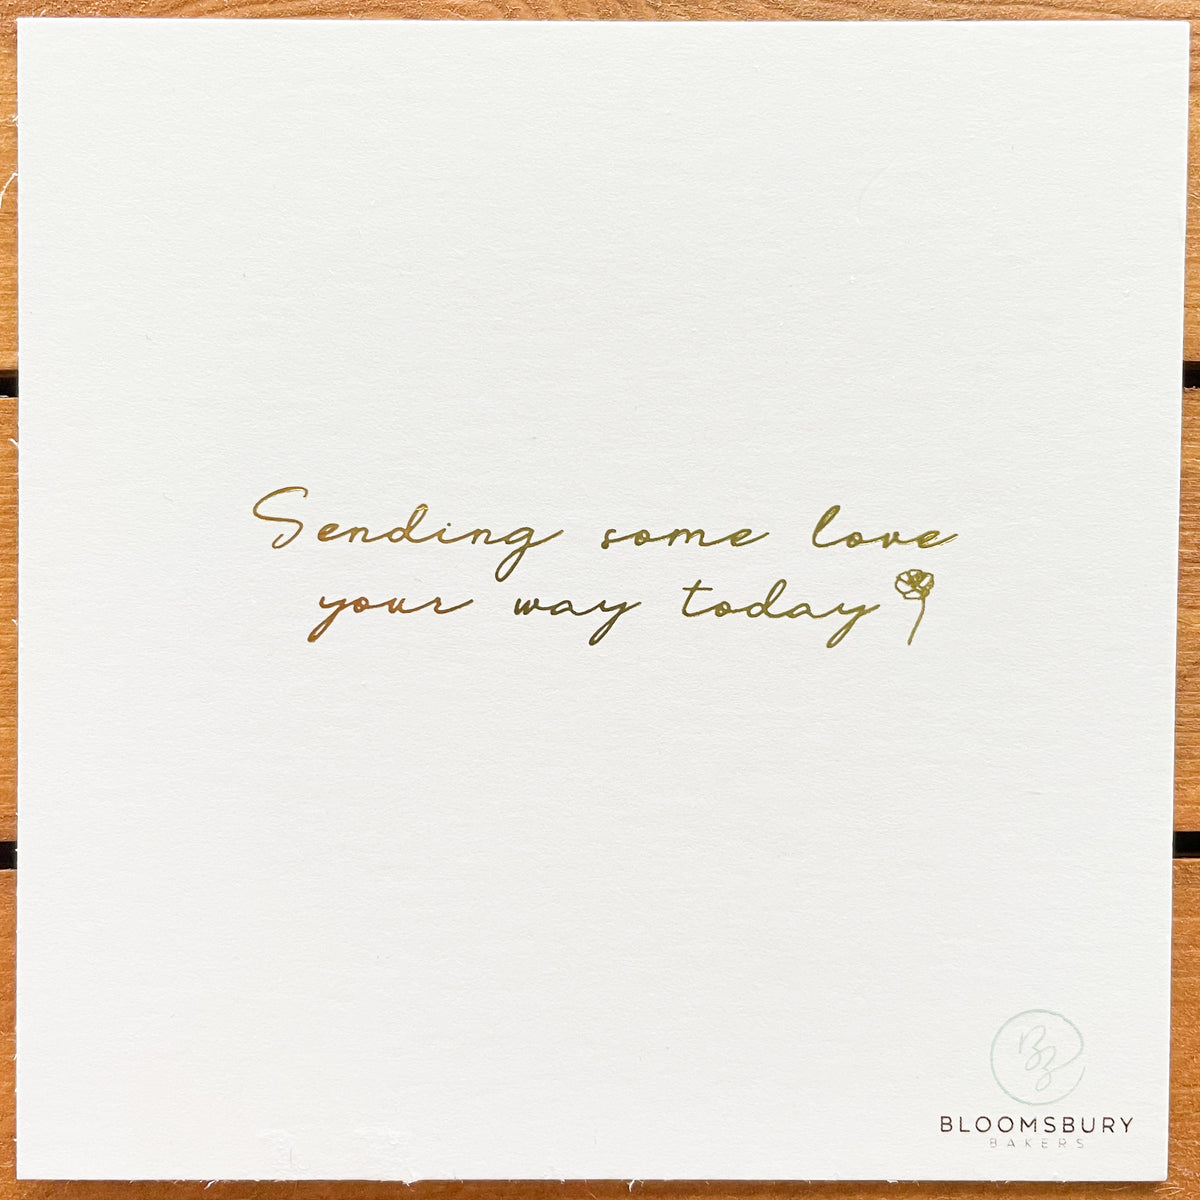 Sending some love
your way today
BB
BLOOMSBURY
BAKERS